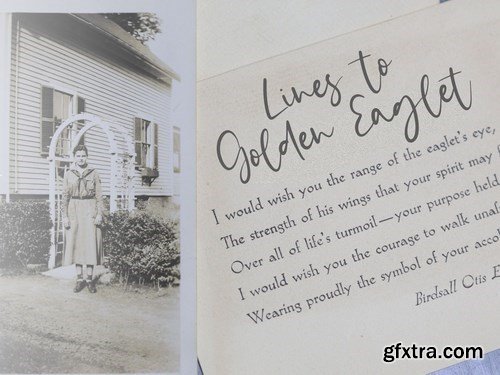 Lines to
Golden Eaglet
I would wish you the range of the eaglet's eye,
The strength of his wings that your spirit may
Over all of life's turmoil—your purpose held
I would wish you the courage to walk
Wearing proudly the symbol of your
Birdsall Otis
gfxtra.com